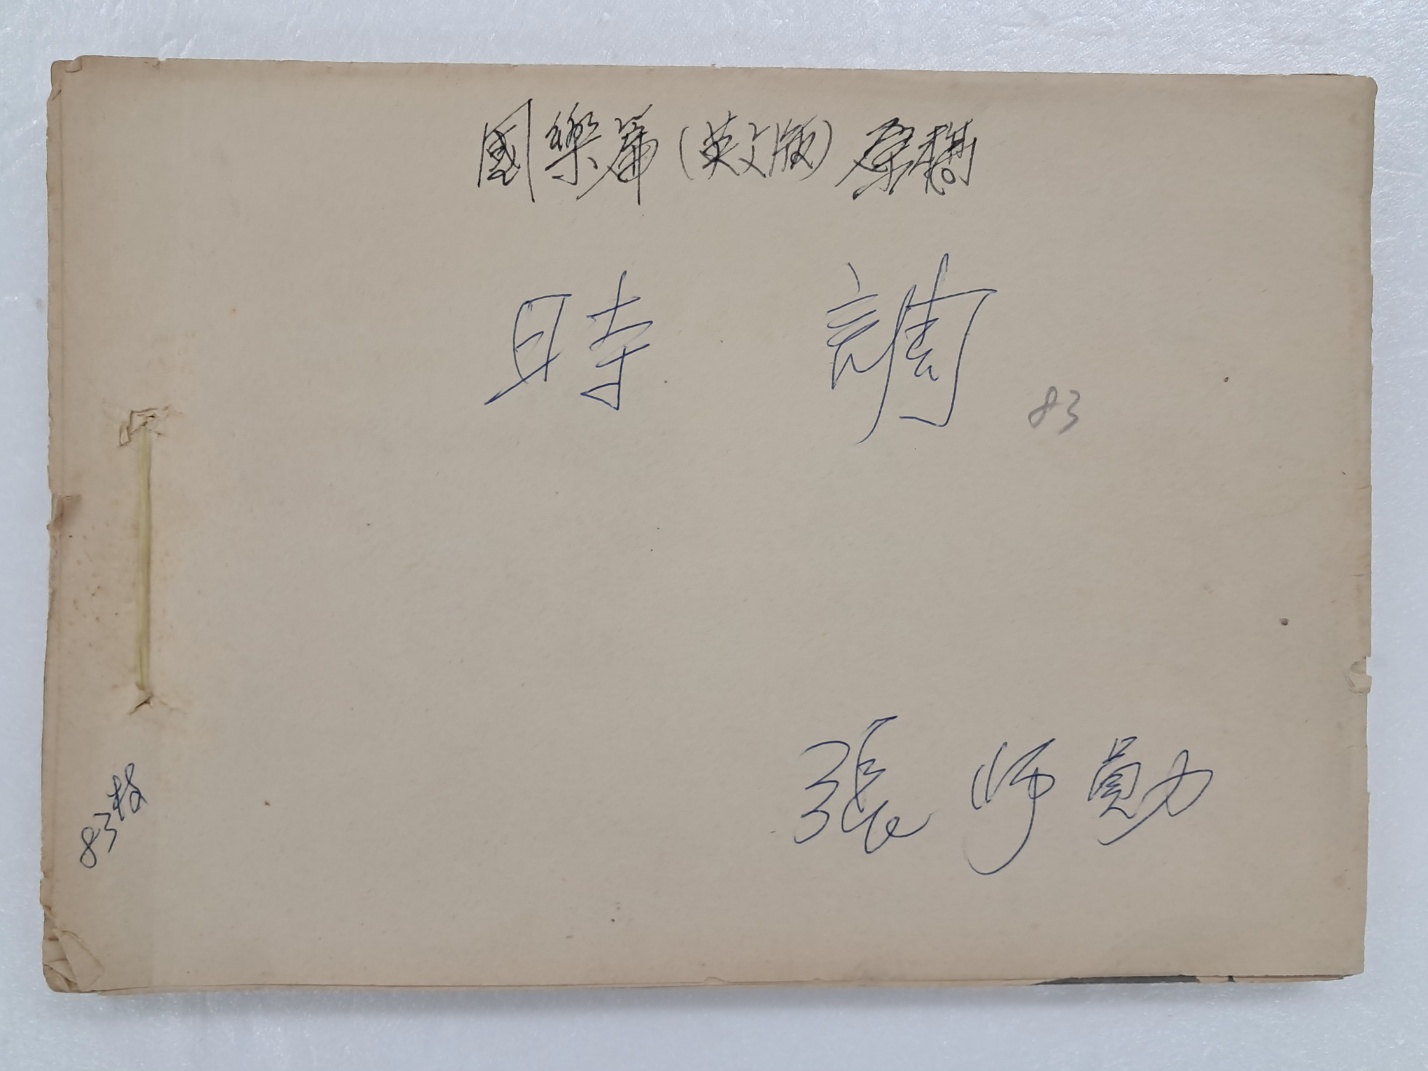 國樂篇(英文版)原稿
時調
83
張师勛
83枝